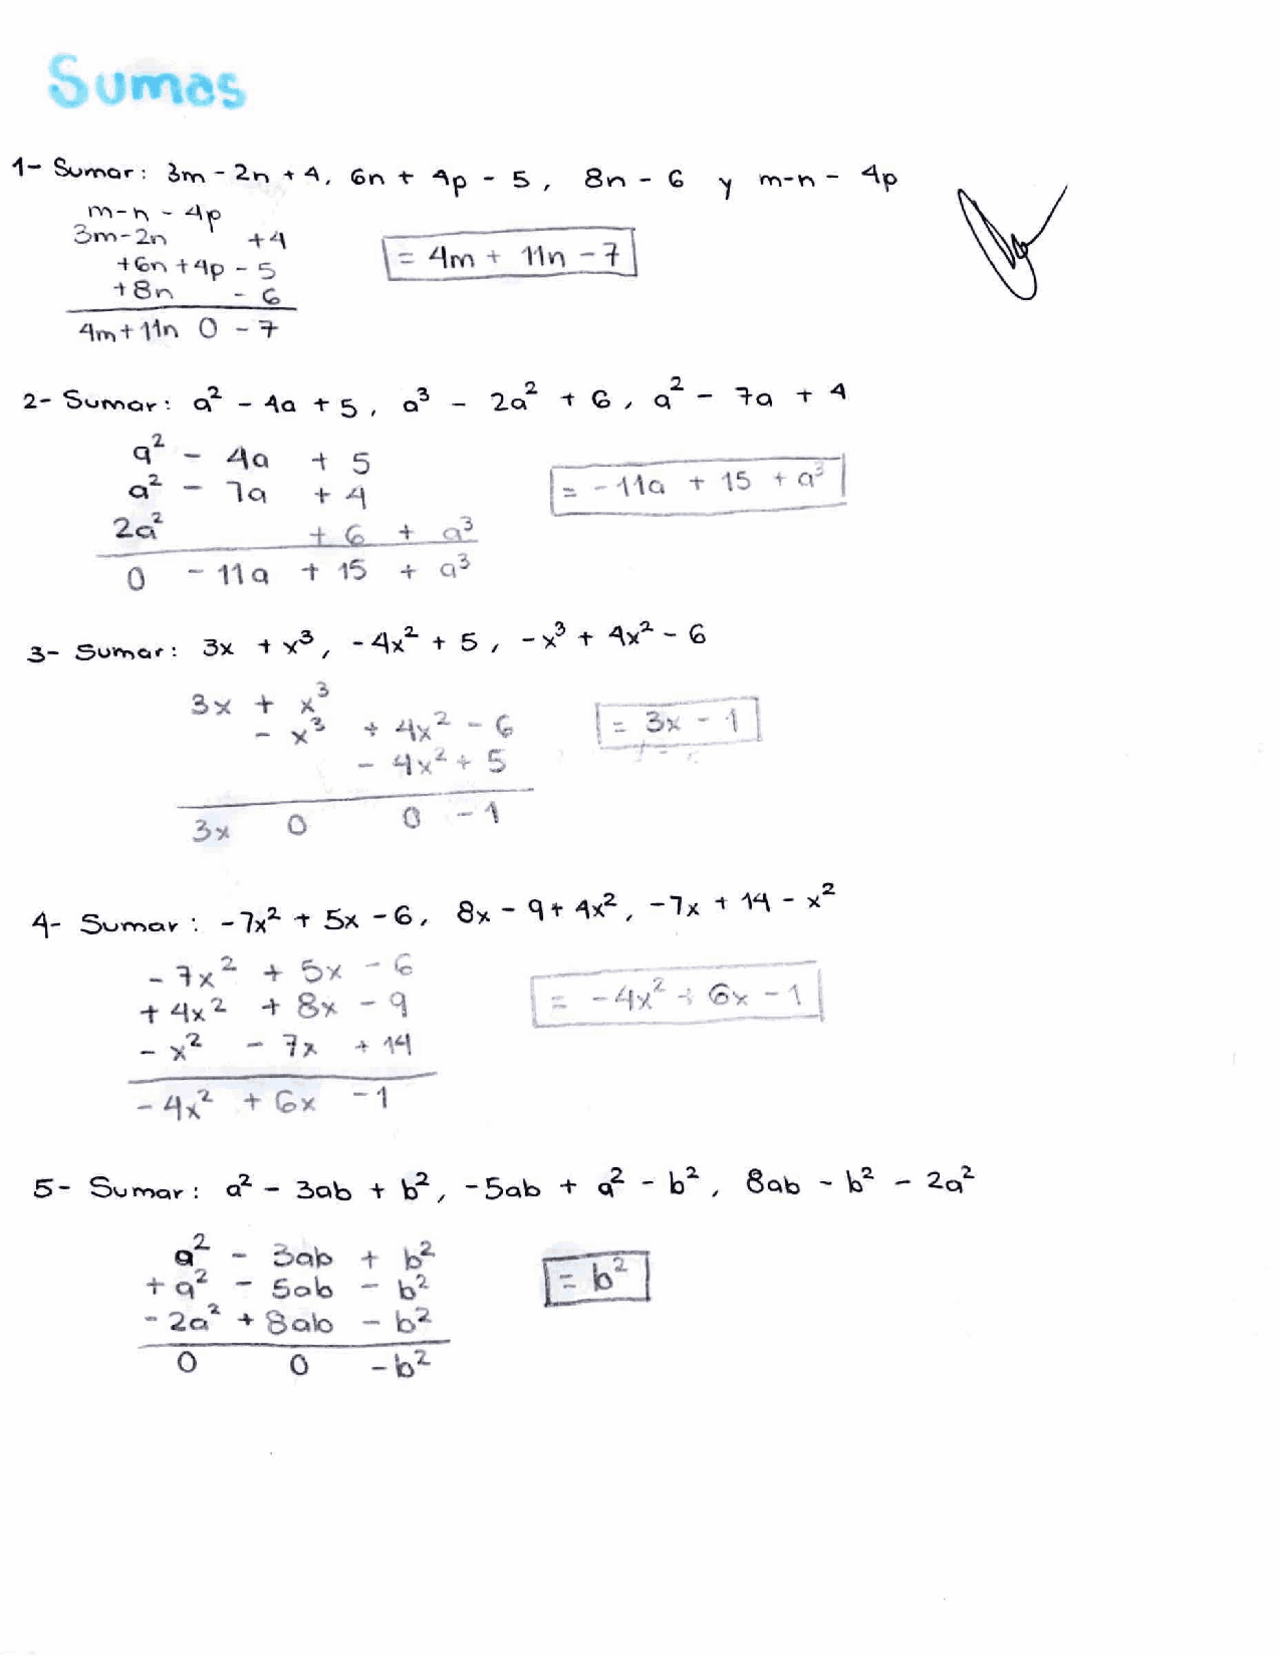 Sumas
1- Sumar: 3m - 2n + 4, 6n + 4p - 5, 8n - 6 y m-n - 4p
m-n - 4p
3m-2n +4
+6n +4p - 5
+8n - 6
4m+11n 0 - 7
= 4m + 11n - 7
2- Sumar: a² - 4a + 5, a³ - 2a² + 6, a² - 7a + 4
a² - 4a + 5
a² - 7a + 4
2a² + 6 + a³
0 - 11a + 15 + a³
= -11a + 15 + a³
3- Sumar: 3x + x³, -4x² + 5, -x³ + 4x² - 6
3x + x³
- x³ + 4x² - 6
- 4x² + 5
3x 0 0 - 1
= 3x - 1
4- Sumar: -7x² + 5x - 6, 8x - 9 + 4x², -7x + 14 - x²
- 7x² + 5x - 6
+ 4x² + 8x - 9
- x² - 7x + 14
- 4x² + 6x - 1
= -4x² + 6x - 1
5- Sumar: a² - 3ab + b², -5ab + a² - b², 8ab - b² - 2a²
a² - 3ab + b²
+ a² - 5ab - b²
- 2a² + 8ab - b²
0 0 - b²
= b²